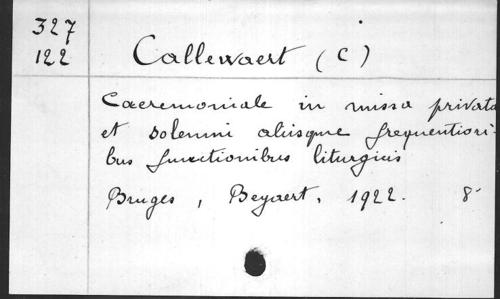 327
122
Callewaert (C)
Caeremoniale in missa privata
et solemni aliisque frequentiori-
bus functionibus liturgicis
Bruges, Beyaert, 1922. 8°